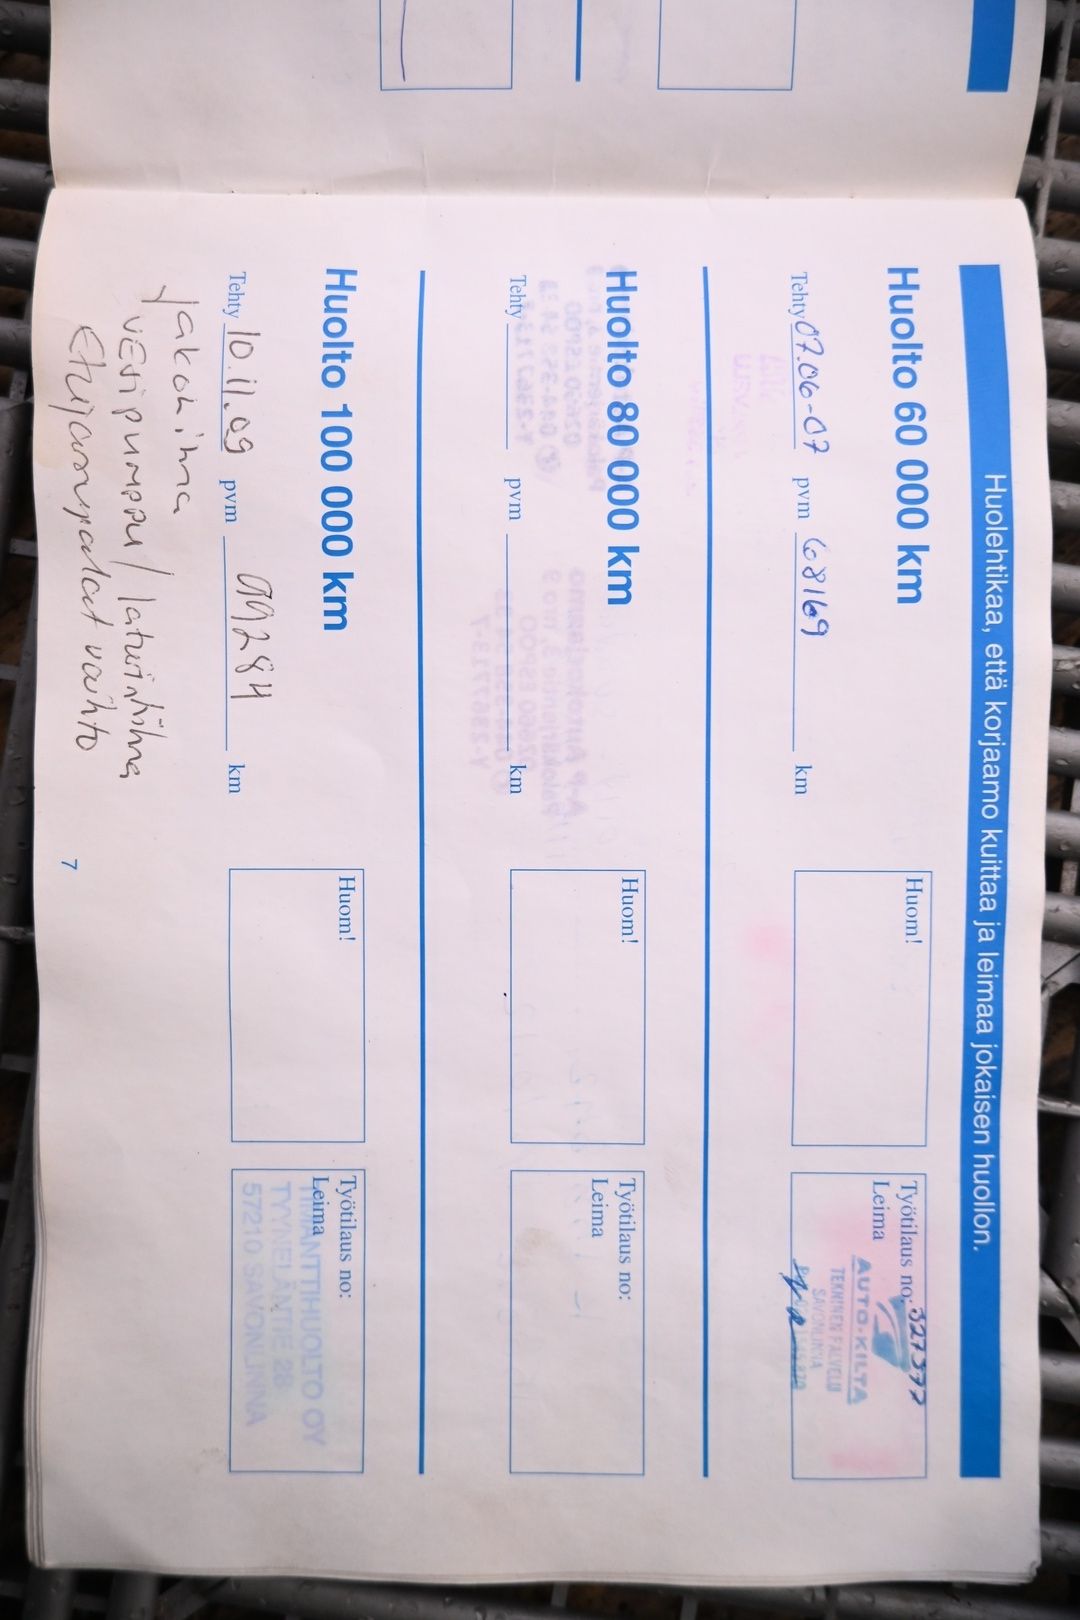 Huolehtikaa, että korjaamo kuittaa ja leimaa jokaisen huollon.
Huolto 60 000 km
Tehty 07.06-07 pvm 68169 km
Huom!
Työtilaus no: 327377
Leima
AUTO-KILTA
TEKNINEN PALVELU
SAVONLINNA
Huolto 80 000 km
Tehty pvm km
Huom!
Työtilaus no:
Leima
Huolto 100 000 km
Tehty 10.11.09 pvm 99284 km
Huom!
Työtilaus no:
Leima
TIMANTTIHUOLTO OY
TYYNELÄNTIE 28
57210 SAVONLINNA
Jakohihna
vesipumppu / laturinhihna
Etujarrupalat vaihto
7